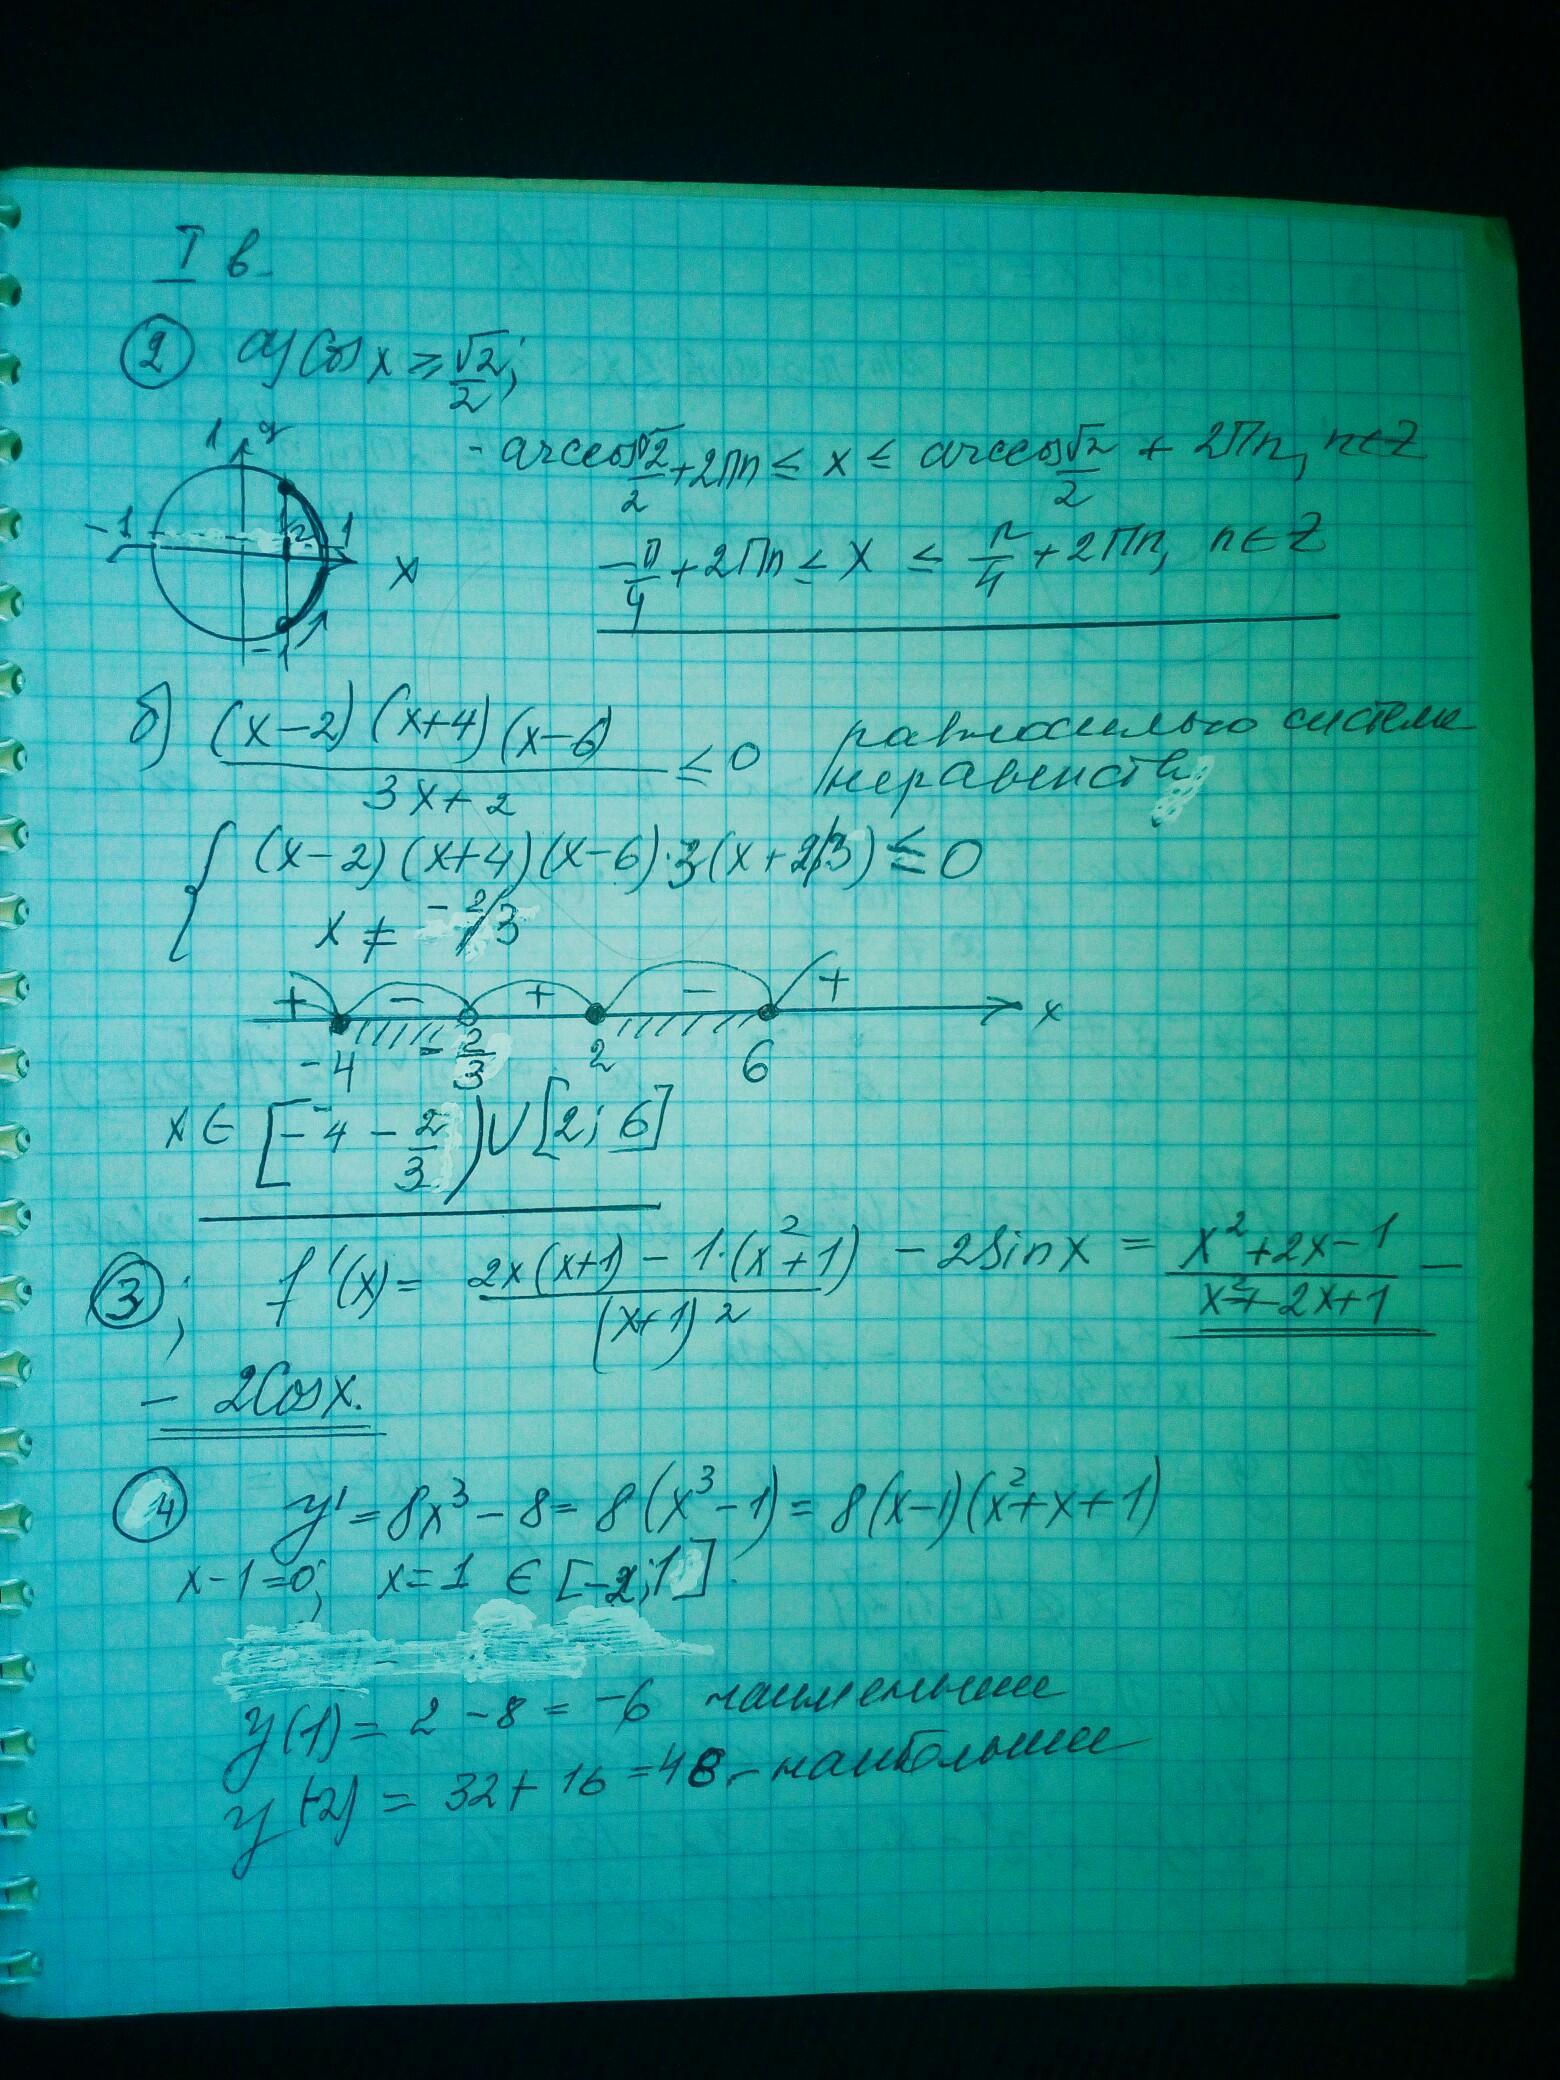 I в
2 а) Cos x ≥ √2/2;
1 y
- arccos √2/2 + 2Пn ≤ x ≤ arccos √2/2 + 2Пn, n∈Z
-1 1 x
-П/4 + 2Пn ≤ x ≤ П/4 + 2Пn, n∈Z
-1
б) (x-2)(x+4)(x-6)/(3x+2) ≤ 0 равносильно системе
неравенств
{ (x-2)(x+4)(x-6)·3(x+2/3) ≤ 0
x ≠ -2/3
+ - + - + x
-4 -2/3 2 6
x ∈ [-4 -2/3) ∪ [2; 6]
3; f'(x) = (2x(x+1) - 1·(x²+1))/(x+1)² - 2Sin x = (x²+2x-1)/(x²+2x+1) -
- 2Cos x.
4 y' = 8x³ - 8 = 8(x³-1) = 8(x-1)(x²+x+1)
x-1=0; x=1 ∈ [-2;1].
y(1) = 2 - 8 = -6 наименьшее
y(-2) = 32 + 16 = 48 - наибольшее